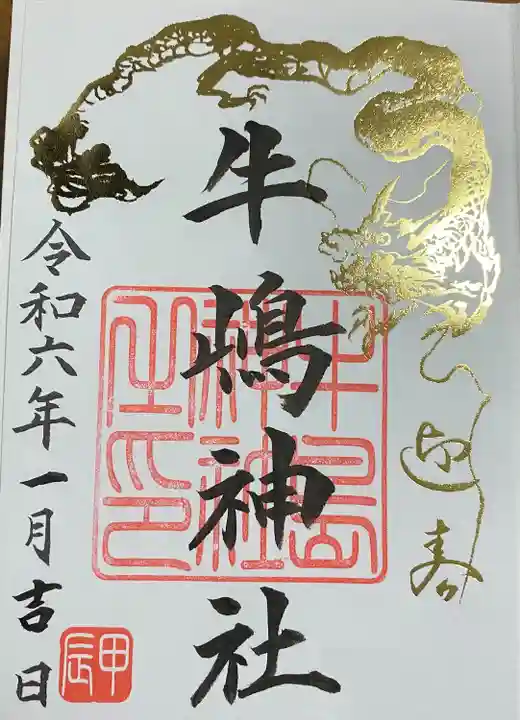 迎寿
牛嶋神社
牛嶋神社之印
令和六年一月吉日
甲辰